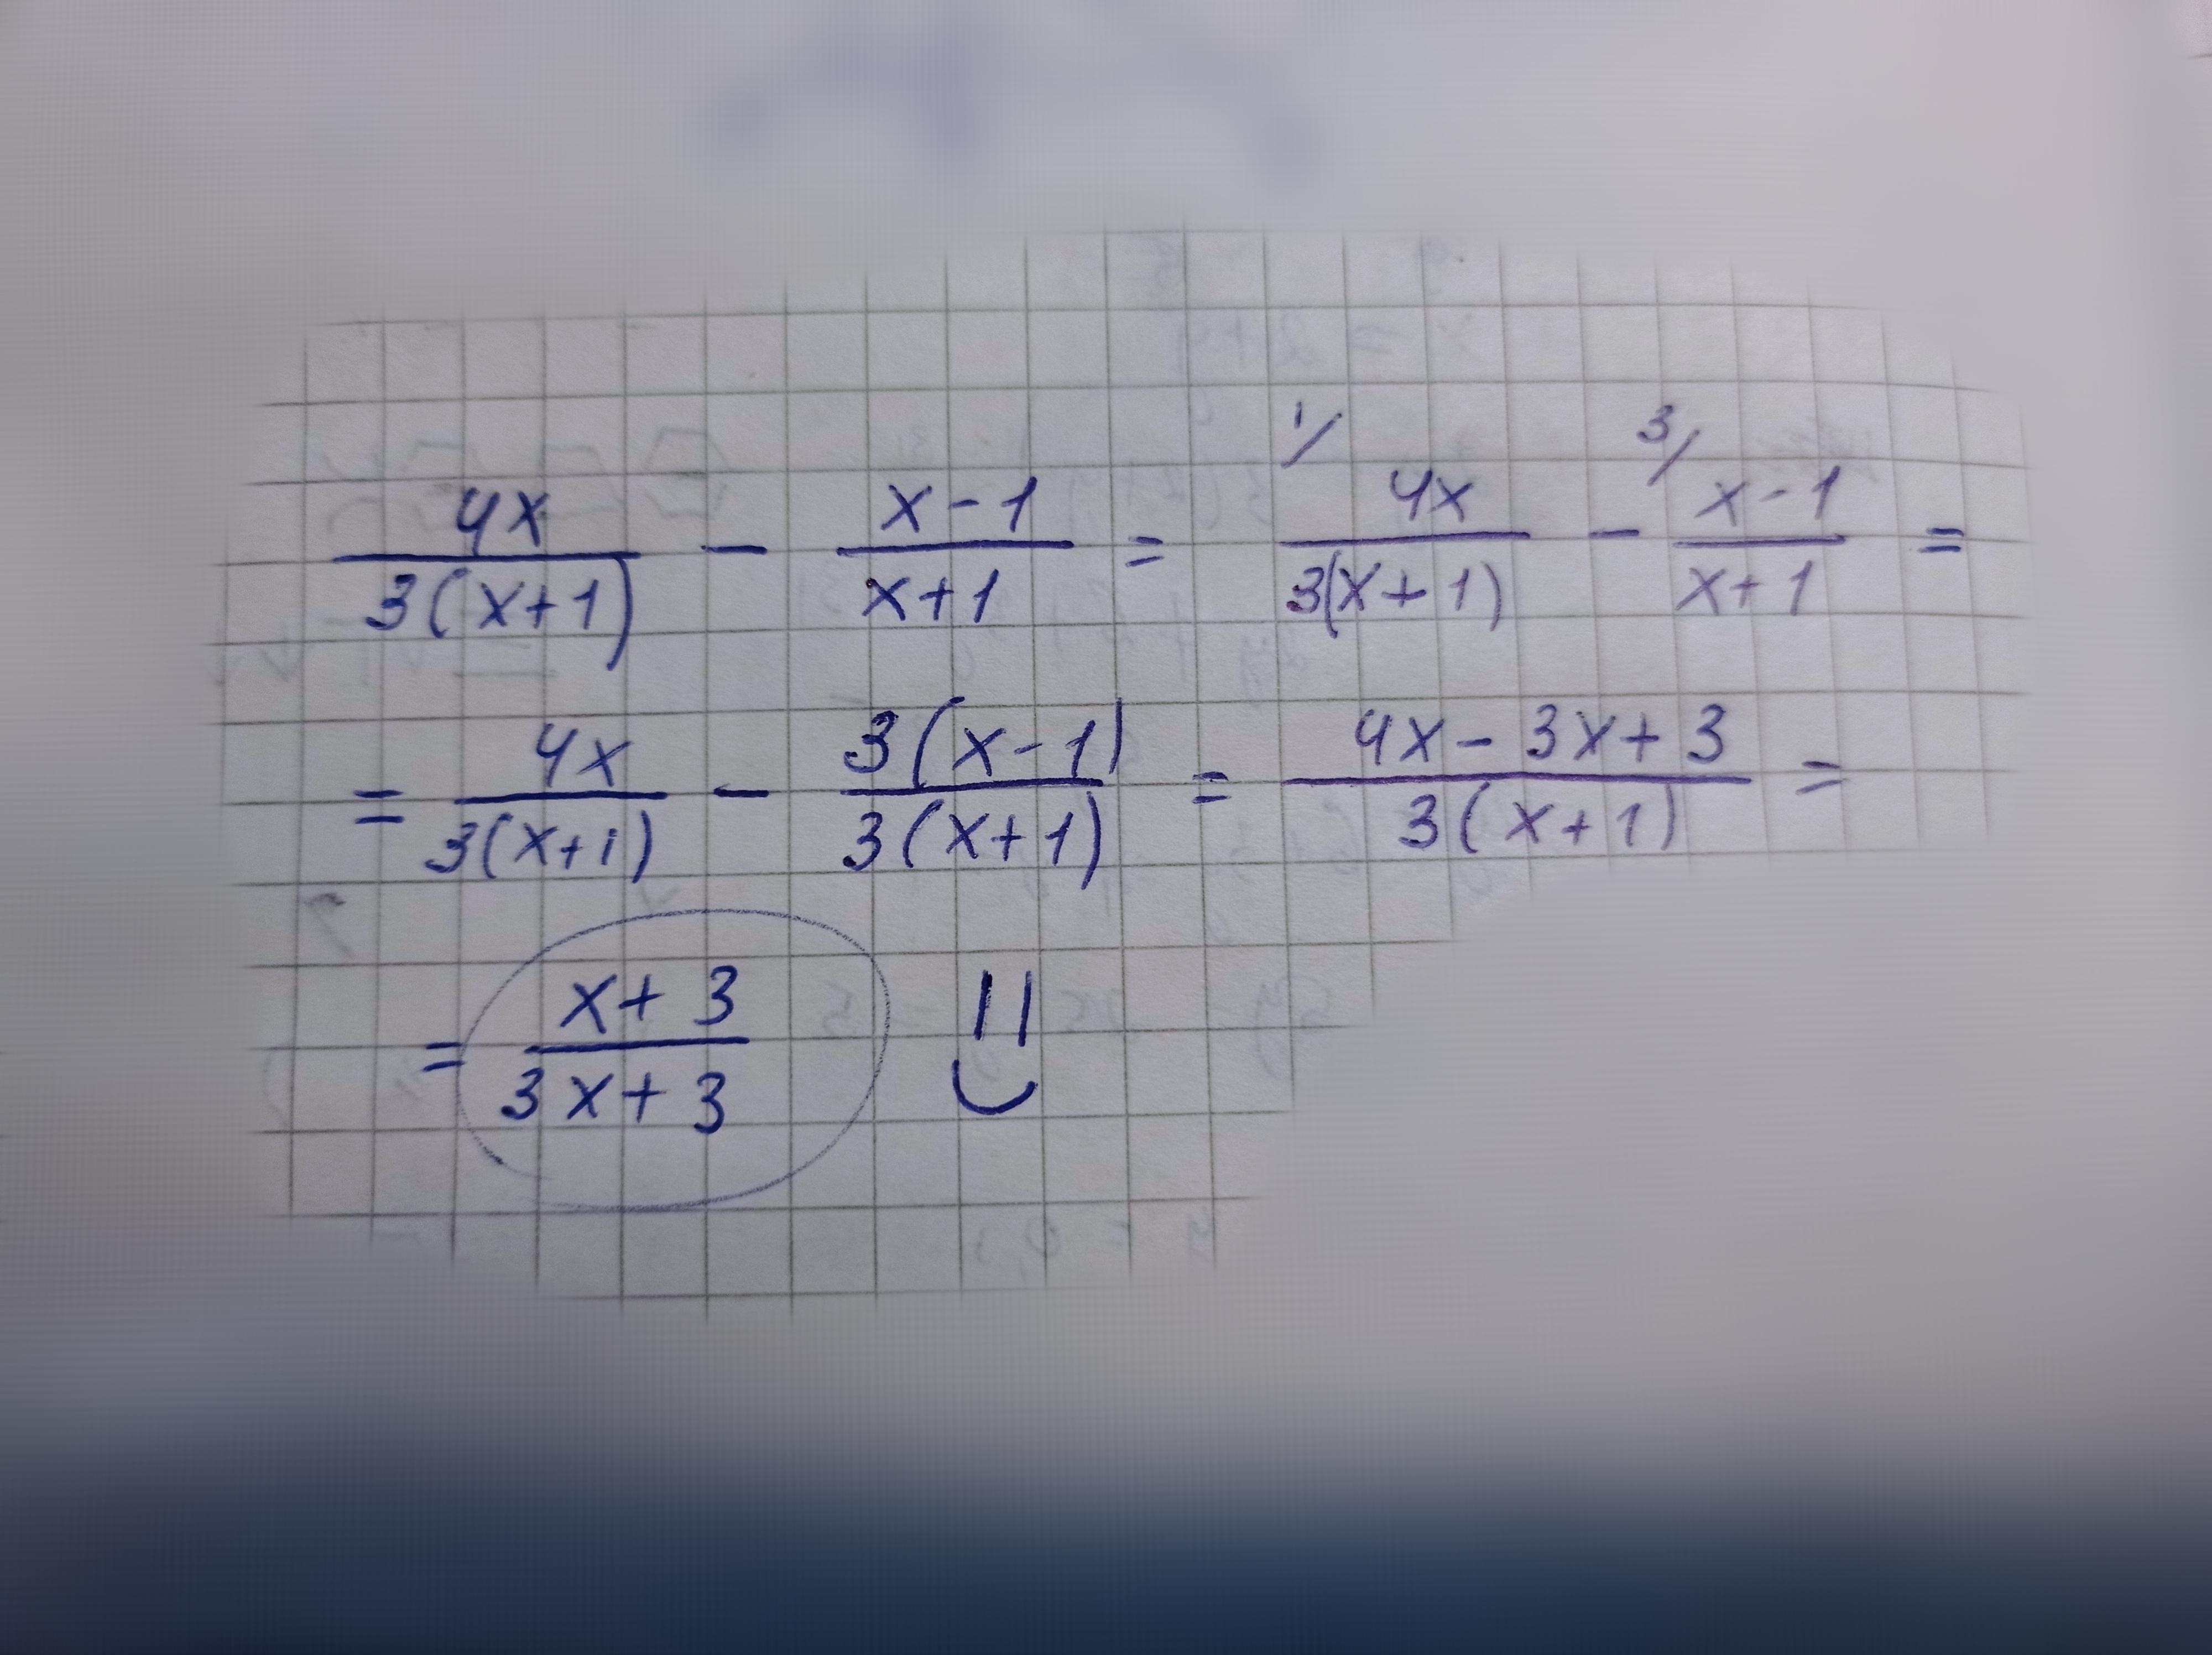 4x/3(x+1) - x-1/x+1 = 1/ 4x/3(x+1) - 3/ x-1/x+1 =
= 4x/3(x+1) - 3(x-1)/3(x+1) = 4x-3x+3/3(x+1) =
= x+3/3x+3